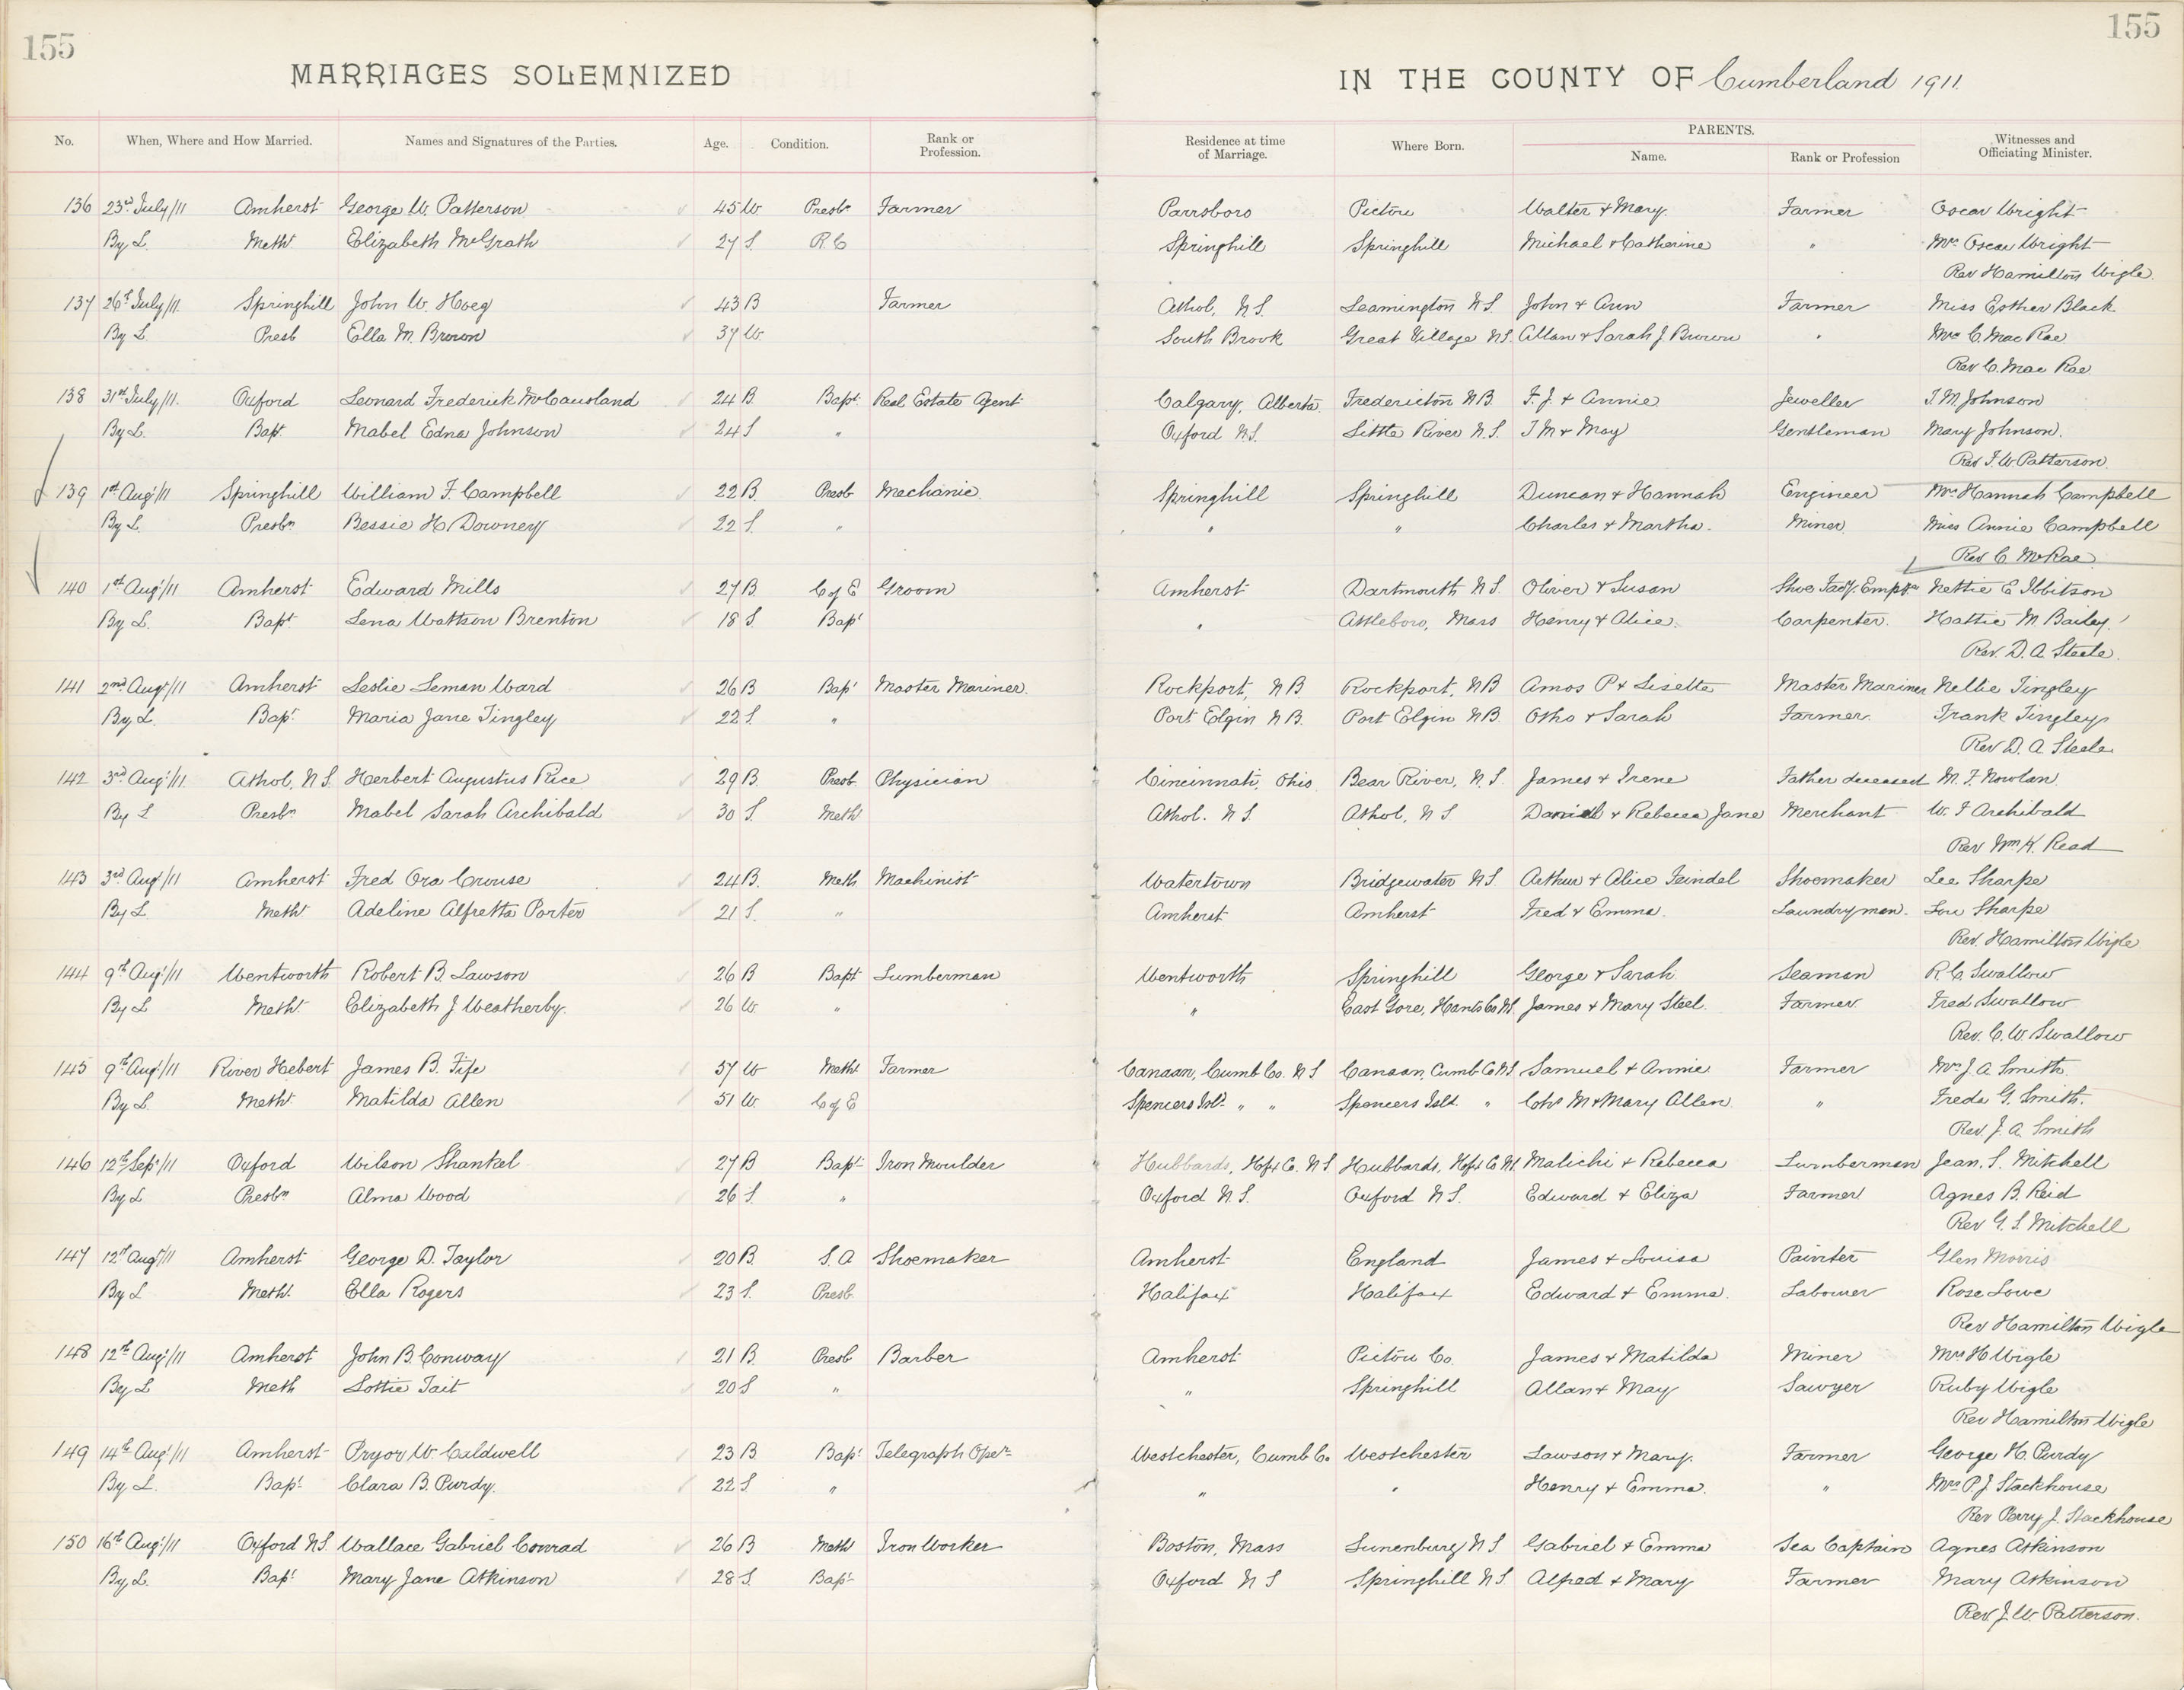 155 155
MARRIAGES SOLEMNIZED IN THE COUNTY OF Cumberland 1911.
No. When, Where and How Married. Names and Signatures of the Parties. Age. Condition. Rank or Profession. Residence at time of Marriage. Where Born. PARENTS. Name. Rank or Profession Witnesses and Officiating Minister.
136 23rd July/11 Amherst George W. Patterson 45 W Presbn Farmer Parrsboro Pictou Walter & Mary Farmer Oscar Wright
By L. Meth Elizabeth McGrath 27 S. R C Springhill Springhill Michael & Catherine " Mrs Oscar Wright
Rev Hamilton Wigle.
137 26th July/11. Springhill John W. Hoeg 43 B Farmer Athol, N S. Leamington N S John & Ann Farmer Miss Esther Black
By L. Presb Ella M. Brown 37 W. South Brook Great Village N S. Allan & Sarah J Brown " Mrs C. Mac Rae
Rev C. Mac Rae
138 31st July/11. Oxford Leonard Frederick McCausland 24 B. Bapt Real Estate Agent Calgary, Alberta. Fredericton N B. F. J. & Annie Jeweller T. M Johnson
By L. Bapt. Mabel Edna Johnson 24 S " Oxford N S. Little River N. S. T M & May Gentleman Mary Johnson.
Rev F. W. Patterson.
139 1st Aug/11 Springhill William F. Campbell 22 B. Presb Mechanic. Springhill Springhill Duncan & Hannah Engineer Mrs Hannah Campbell
By L. Presbn Bessie H. Downey 22 S. " " " Charles & Martha. Miner Miss Annie Campbell
Rev C McRae
140 1st Aug/11 Amherst Edward Mills 27 B. C of E Groom Amherst Dartmouth N S. Oliver & Susan Shoe Facty. Nettie E Ibbitson
By L. Bapt Lena Wattson Brenton 18 S. Bapt " Attleboro, Mass Henry & Alice. Carpenter. Hattie M Bailey.
Rev. D. A. Steele.
141 2nd Aug/11 Amherst Leslie Leman Ward 26 B Bapt Master Mariner. Rockport, N B. Rockport, N B Amos P & Lisette Master Mariner Nellie Tingley
By L. Bapt. Maria Jane Tingley 22 S. " Port Elgin N B. Port Elgin N B. Otho & Sarah Farmer. Frank Tingley
Rev D. A Steele
142 3rd Aug/11. Athol, N S. Herbert Augustus Rice 29 B. Presb. Physician Cincinnati, Ohio Bear River, N. S. James & Irene Father deceased M. F. Nowlan
By L Presbn Mabel Sarah Archibald 30 S. Meth Athol. N S. Athol, N S Daniel & Rebecca Jane Merchant W. F Archibald
Rev Wm K. Read
143 3rd Aug/11 Amherst Fred Ora Crouse 24 B. Meth Machinist Watertown Bridgewater N S. Arthur & Alice Feindel Shoemaker Lee Sharpe
By L Meth Adeline Alfretta Porter 21 S. " Amherst Amherst Fred & Emma. Laundryman. Lou Sharpe
Rev. Hamilton Wigle
144 9th Aug/11 Wentworth Robert B. Lawson 26 B Bapt Lumberman Wentworth Springhill George & Sarah Seaman R. C Swallow
By L Meth. Elizabeth J Weatherby. 26 W. " " East Gore, Hants Co N S. James & Mary Steel. Farmer Fred Swallow
Rev. C. W. Swallow
145 9th Aug/11 River Hebert James B. Fife 57 W Meth Farmer Canaan, Cumb Co. N S Canaan, Cumb Co N S Samuel & Annie Farmer Mrs J. A Smith.
By L. Meth. Matilda Allen 51 W. C of E Spencers Isld. " " Spencers Isld. " Chs M & Mary Allen " Freda G. Smith.
Rev. J. A. Smith
146 12th Sep/11 Oxford Wilson Shankel 27 B Bapt Iron Moulder Hubbards, Hfx Co. N S Hubbards, Hfx Co N S. Malichi & Rebecca Lumberman Jean. S. Mitchell
By L Presbn Alma Wood 26 S. " Oxford N S. Oxford N S. Edward & Eliza Farmer Agnes B. Reid
Rev G. S Mitchell
147 12th Aug/11 Amherst George D. Taylor 20 B. S. A Shoemaker Amherst England James & Louisa Painter Glen Morris
By L Meth. Ella Rogers 23 S. Presb. Halifax Halifax Edward & Emma. Labourer Rose Lowe
Rev Hamilton Wigle
148 12th Aug/11 Amherst John B. Conway 21 B. Presb Barber Amherst Pictou Co. James & Matilda Miner Mrs H Wigle
By L Meth Lottie Tait 20 S " " Springhill Allan & May Sawyer Ruby Wigle
Rev Hamilton Wigle
149 14th Aug/11 Amherst Pryor W. Caldwell 23 B. Bapt Telegraph Oper. Westchester, Cumb Co. Westchester Lawson & Mary. Farmer George H. Purdy
By L. Bapt Clara B. Purdy. 22 S. " " " Henry & Emma. " Mrs P. J Stackhouse
Rev Perry J. Stackhouse
150 16th Aug/11 Oxford N S. Wallace Gabriel Conrad 26 B Meth Iron Worker Boston, Mass Lunenburg N S Gabriel & Emma Sea Captain Agnes Atkinson
By L. Bapt Mary Jane Atkinson 28 S. Bapt Oxford N S Springhill N S. Alfred & Mary Farmer Mary Atkinson
Rev. J. W. Patterson.